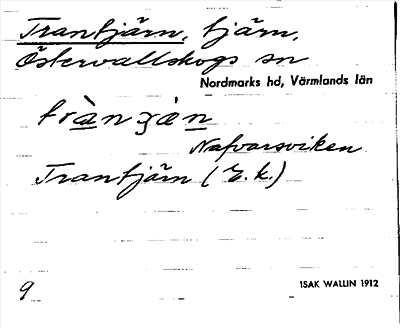 Trantjärn, tjärn,
Östervallskogs sn
Nordmarks hd, Värmlands län
Nafvarsviken
Trantjärn (E.k.)
9
ISAK WALLIN 1912